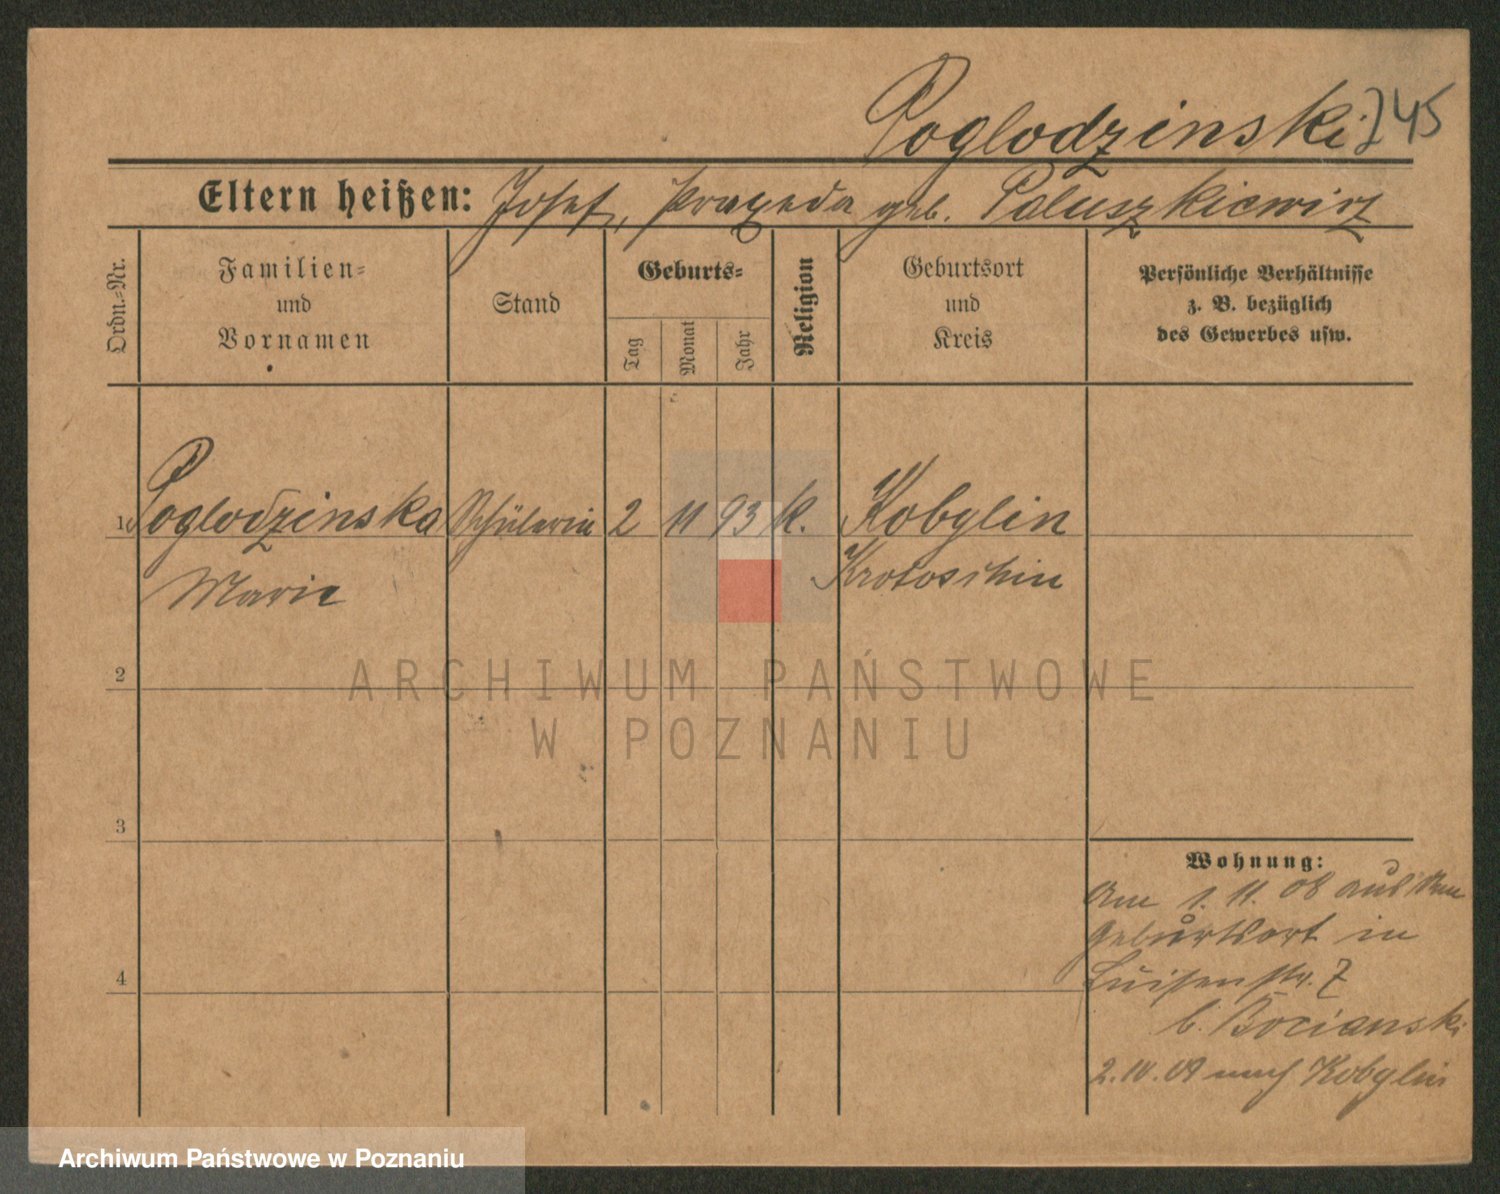 Poglodzinski 745
Eltern heißen: Josef, Praxeda geb. Paluszkiewicz
Ordn.-Nr.
Familien-
und
Vornamen
Stand
Geburts-
Tag
Monat
Jahr
Religion
Geburtsort
und
Kreis
Persönliche Verhältnisse
z. B. bezüglich
des Gewerbes usw.
1 Poglodzinska Schülerin 2 11 93 k. Kobylin
Marie Krotoschin
2
3
4
Wohnung:
Am 1. 11. 08 aus dem
Geburtsort in
Luisenstr. 7
b. Bocianski
2. 10. 09 nach Kobylin
ARCHIWUM PAŃSTWOWE
W POZNANIU
Archiwum Państwowe w Poznaniu